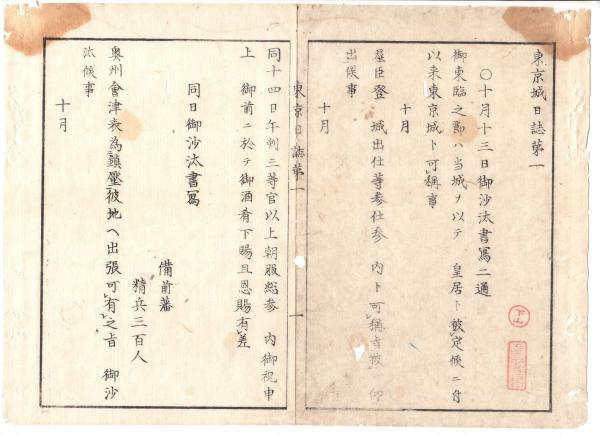 東京城日誌第一
〇十月十三日御沙汰書寫二通
御東臨之節ハ当城ヲ以テ 皇居ト被定候ニ付
以来東京城ト可稱事
十月
群臣登 城出仕等参仕参 内ト可稱旨被 仰
出候事
十月
東京日誌第一 一
同十四日午刻三等官以上朝服総参 内御祝申
上 御前ニ於テ御酒肴下賜且恩賜有差
同日御沙汰書寫
備前藩
精兵三百人
奥州會津表為鎮壓彼地ヘ出張可有之旨 御沙
汰候事
十月